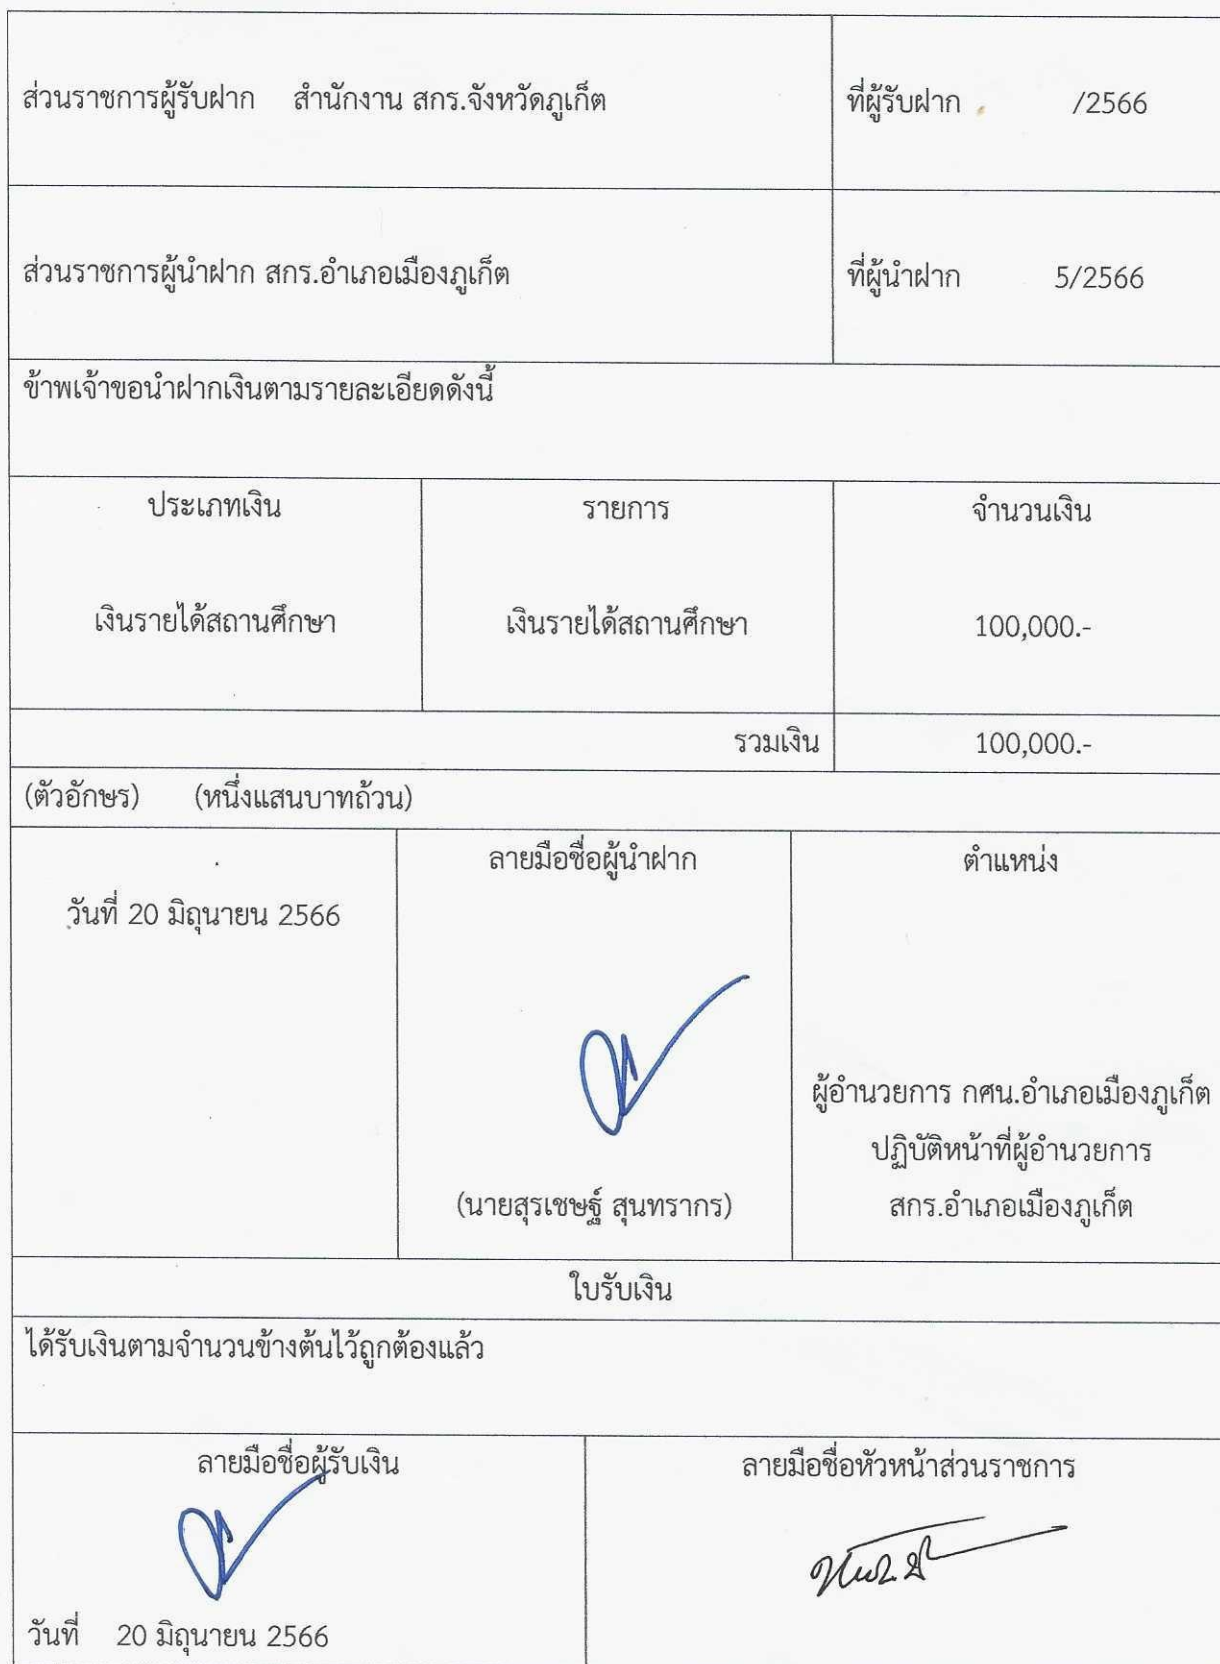 ส่วนราชการผู้รับฝาก สำนักงาน สกร.จังหวัดภูเก็ต
ที่ผู้รับฝาก /2566
ส่วนราชการผู้นำฝาก สกร.อำเภอเมืองภูเก็ต
ที่ผู้นำฝาก 5/2566
ข้าพเจ้าขอนำฝากเงินตามรายละเอียดดังนี้
ประเภทเงิน รายการ จำนวนเงิน
เงินรายได้สถานศึกษา เงินรายได้สถานศึกษา 100,000.-
รวมเงิน 100,000.-
(ตัวอักษร) (หนึ่งแสนบาทถ้วน)
วันที่ 20 มิถุนายน 2566
ลายมือชื่อผู้นำฝาก
(นายสุรเชษฐ์ สุนทรากร)
ตำแหน่ง
ผู้อำนวยการ กศน.อำเภอเมืองภูเก็ต
ปฏิบัติหน้าที่ผู้อำนวยการ
สกร.อำเภอเมืองภูเก็ต
ใบรับเงิน
ได้รับเงินตามจำนวนข้างต้นไว้ถูกต้องแล้ว
ลายมือชื่อผู้รับเงิน
วันที่ 20 มิถุนายน 2566
ลายมือชื่อหัวหน้าส่วนราชการ